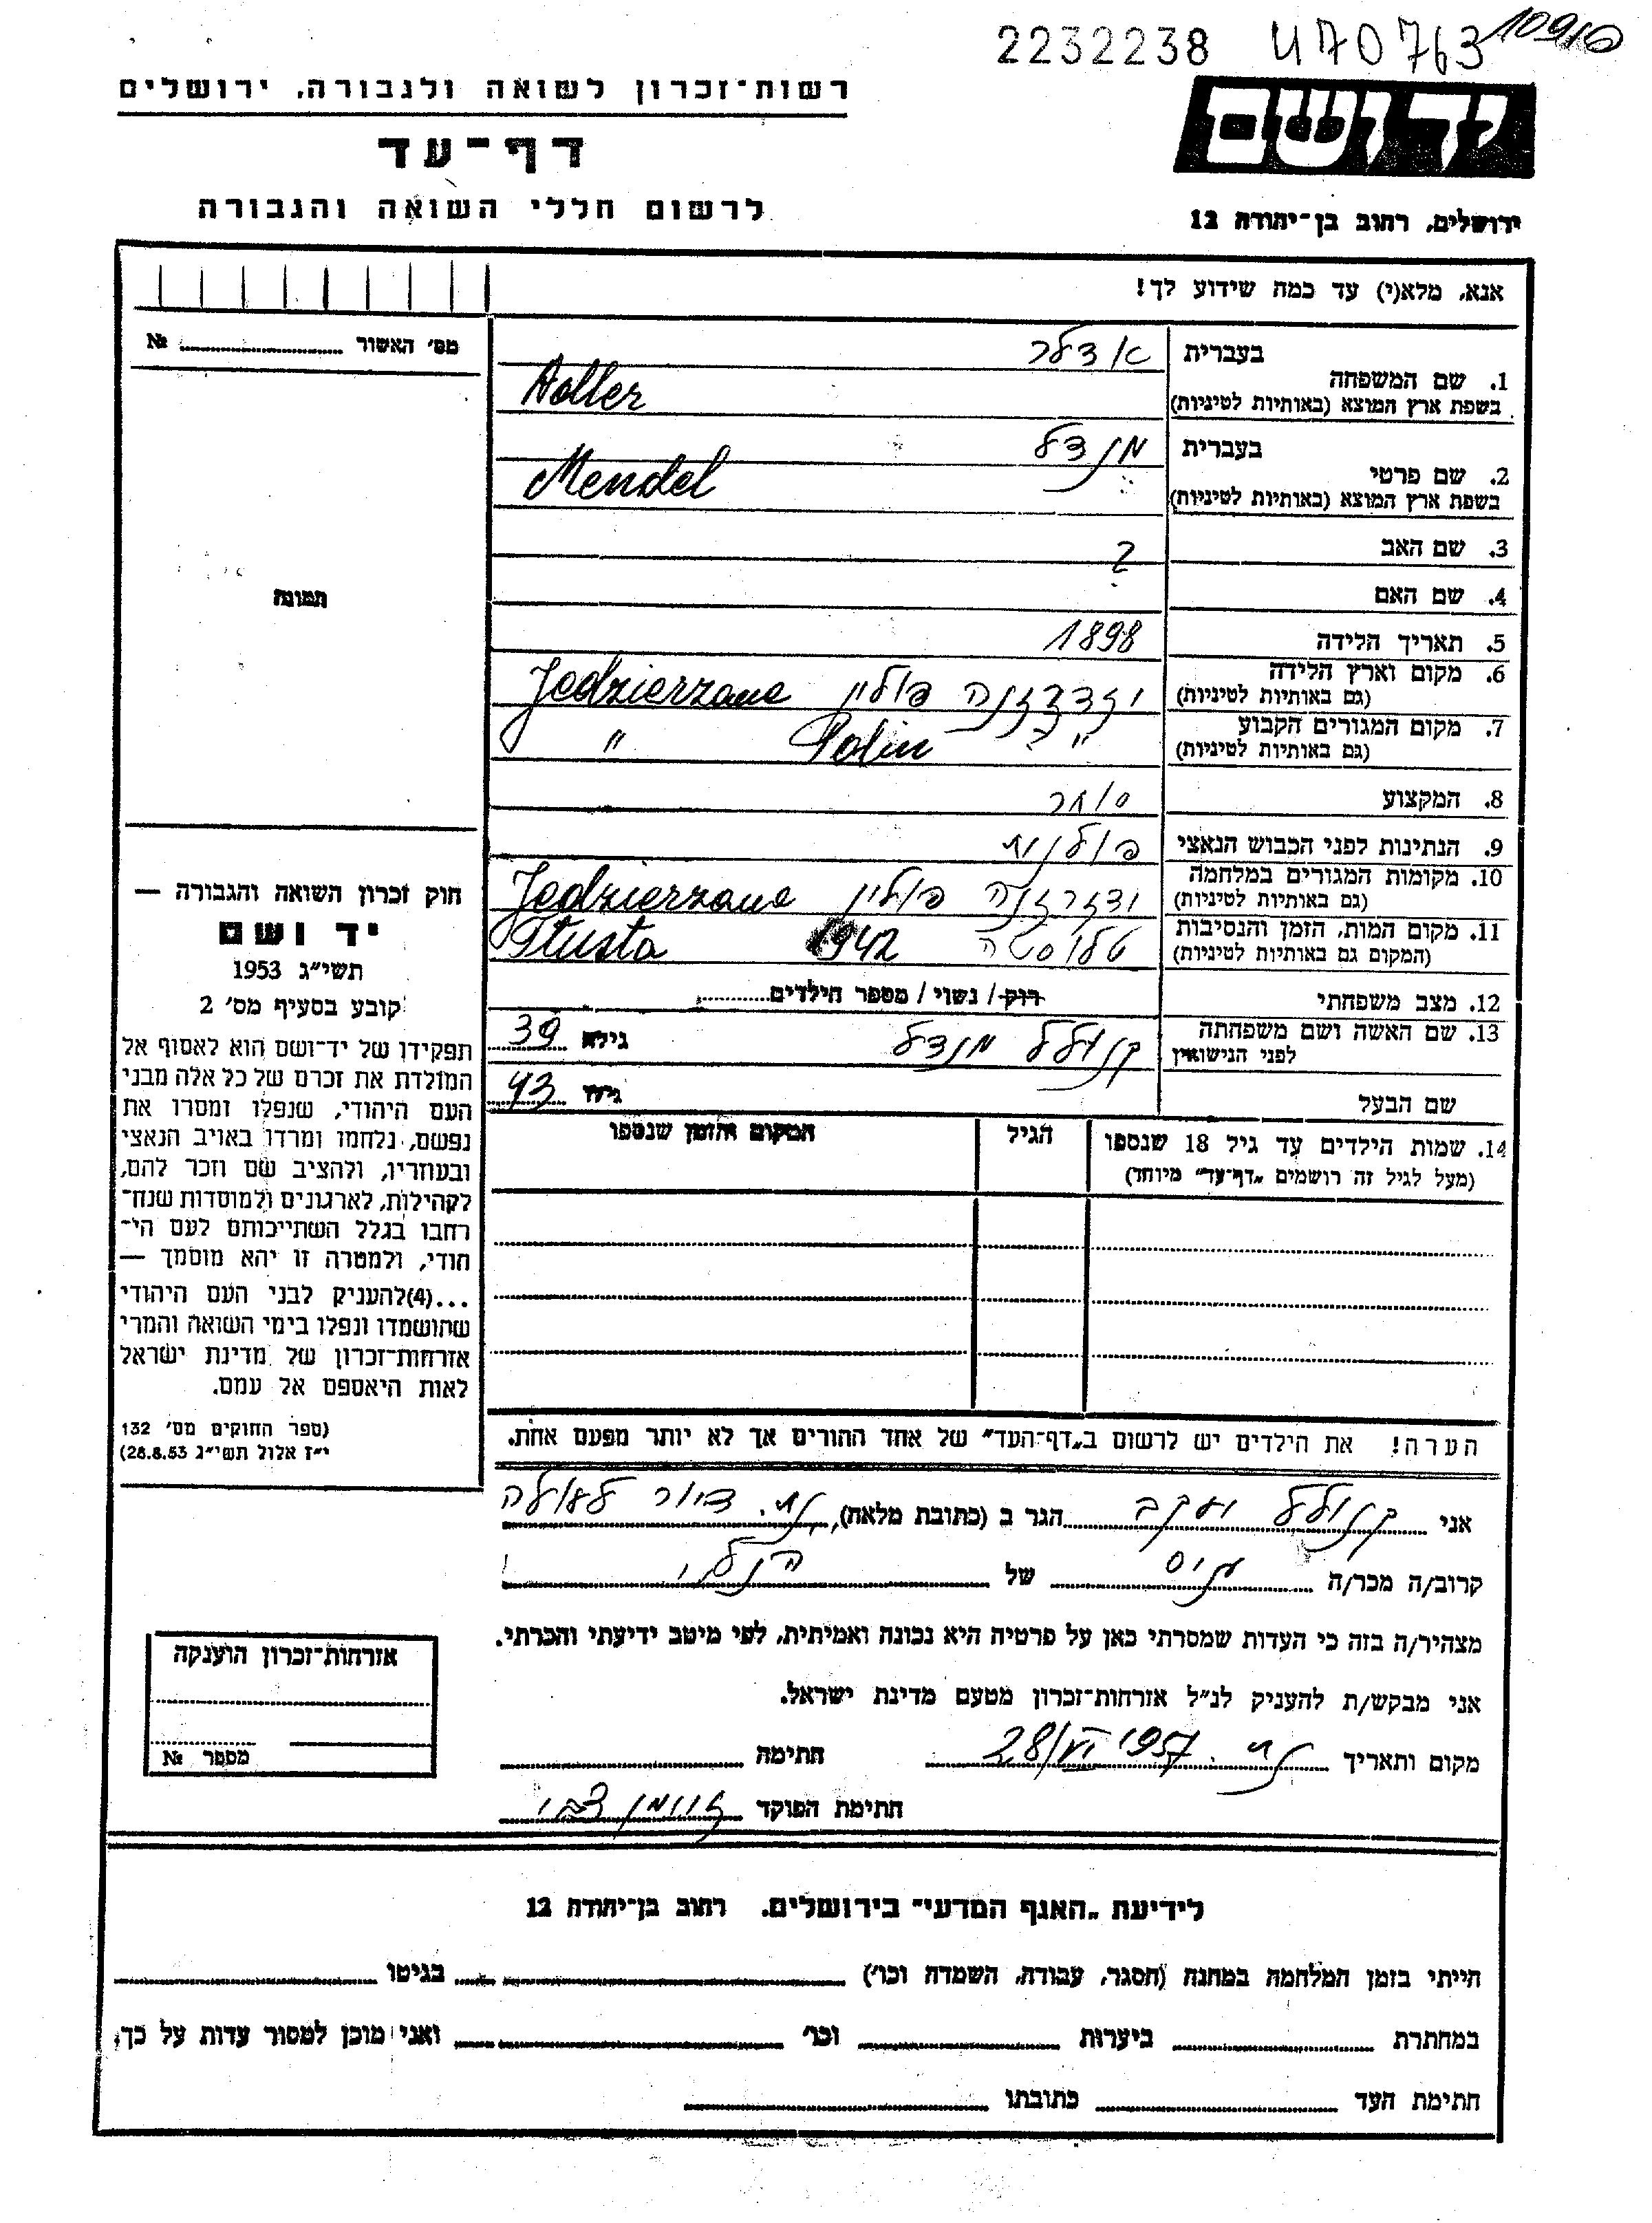 2232238 470763 10910
רשות־זכרון לשואה ולגבורה, ירושלים
יד ושם
דף־עד
לרשום חללי השואה והגבורה
ירושלים, רחוב בן־יהודה 12
אנא, מלא(י) עד כמה שידוע לך!
מס' האשור ............ №
תמונה
בעברית אדלר
1. שם המשפחה
בשפת ארץ המוצא (באותיות לטיניות) Adler
בעברית מנדל
2. שם פרטי
בשפת ארץ המוצא (באותיות לטיניות) Mendel
3. שם האב ?
4. שם האם
5. תאריך הלידה 1898
6. מקום וארץ הלידה פולין Jedzierzane
(גם באותיות לטיניות)
7. מקום המגורים הקבוע " Polin "
(גם באותיות לטיניות)
8. המקצוע סוחר
9. הנתינות לפני הכבוש הנאצי פולנית
10. מקומות המגורים במלחמה פולין Jedzierzane
(גם באותיות לטיניות)
11. מקום המות, הזמן והנסיבות טלוסטה 1942 Tłusta
(המקום גם באותיות לטיניות)
12. מצב משפחתי רוק / נשוי / מספר הילדים............
13. שם האשה ושם משפחתה
לפני הנישואין מנדל גילה 39
שם הבעל גילו 43
14. שמות הילדים עד גיל 18 שנספו הגיל המקום והזמן שנספו
(מעל לגיל זה רושמים „דף־עד” מיוחד)
הערה! את הילדים יש לרשום ב„דף־העד” של אחד ההורים אך לא יותר מפעם אחת.
חוק זכרון השואה והגבורה —
יד ושם
תשי"ג 1953
קובע בסעיף מס' 2
תפקידו של יד־ושם הוא לאסוף אל
המולדת את זכרם של כל אלה מבני
העם היהודי, שנפלו ומסרו את
נפשם, נלחמו ומרדו באויב הנאצי
ובעוזריו, ולהציב שם וזכר להם,
לקהילות, לארגונים ולמוסדות שנח־
רחבו בגלל השתייכותם לעם הי־
חודי, ולמטרה זו יהא מוסמך —
...(4)להעניק לבני העם היהודי
שהושמדו ונפלו בימי השואה והמרי
אזרחות־זכרון של מדינת ישראל
לאות היאספם אל עמם.
(ספר החוקים מס' 132
י"ז אלול תשי"ג 28.8.53)
אני יעקב הגר ב (כתובת מלאה)
קרוב/ה מכר/ה גיס של הנ"ל
מצהיר/ה בזה כי העדות שמסרתי כאן על פרטיה היא נכונה ואמיתית, לפי מיטב ידיעתי והכרתי.
אני מבקש/ת להעניק לנ"ל אזרחות־זכרון מטעם מדינת ישראל.
מקום ותאריך 28/VI 1957 חתימה
חתימת הפוקד
אזרחות־זכרון הוענקה
מספר №
לידיעת „האגף המדעי” בירושלים. רחוב בן־יהודה 12
הייתי בזמן המלחמה במחנה (הסגר, עבודה, השמדה וכו') בגיטו
במחתרת ביערות וכו' ואני מוכן למסור עדות על כך,
חתימת העד כתובתו